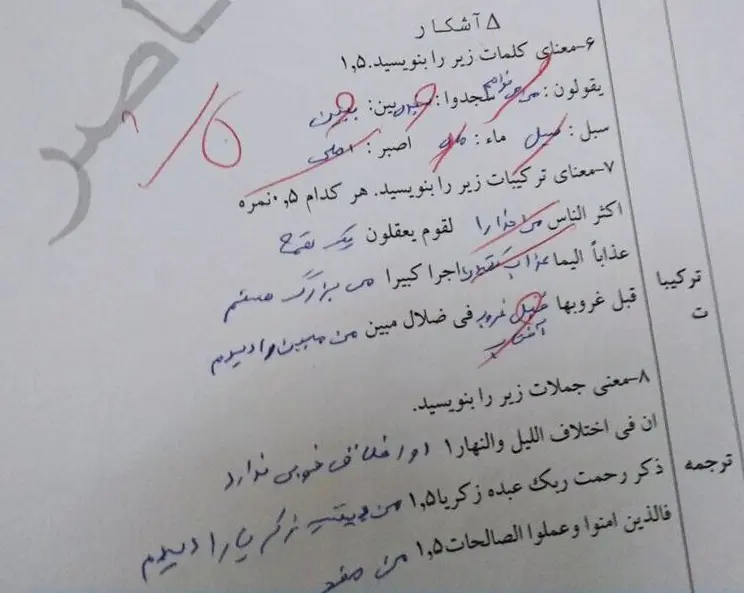 ۵ آشکار
۶-معنای کلمات زیر را بنویسید.۱,۵
یقولون: می خواهم سجدوا: بین: ببین
سبل: سیل ماء: ماه اصبر: اصلی
۷-معنای ترکیبات زیر را بنویسید. هر کدام ۰,۵نمره
اکثر الناس لقوم یعقلون یک نفع
عذاباً الیما عذاب اجرا کبیرا من بزرگ هستم
ترکیبات
قبل غروبها قبل غروب آفتاب فی ضلال مبین من مبین را دیدم
۸-معنی جملات زیر را بنویسید.
ان فی اختلاف اللیل والنهار۱ او اخلاق خوبی ندارد
ترجمه
ذکر رحمت ربک عبده زکریا۱,۵ من دیشب زکریا را دیدم
فالذین امنوا وعملوا الصالحات۱,۵ من